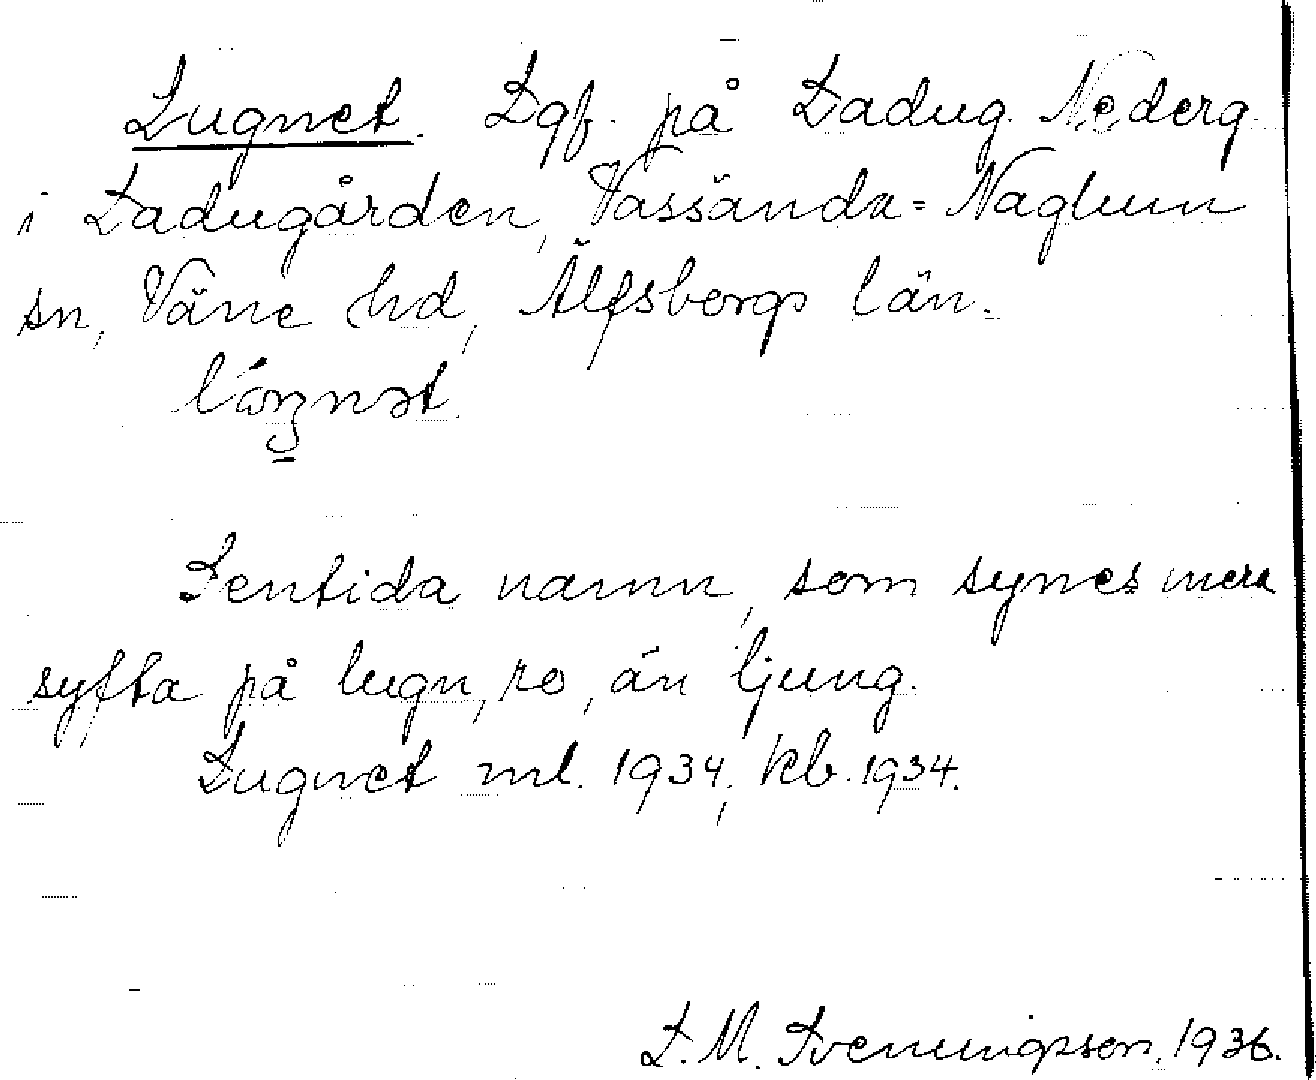 Lugnet. Lgf. på Ladug. Nederg.
i Ladugården, Vassända=Naglum
sn, Väne hd, Älfsborgs län.
Sentida namn, som synes mera
syfta på lugn, ro, än ljung.
Lugnet ml. 1934, kb. 1934.
L. M. Svenungsson, 1936.